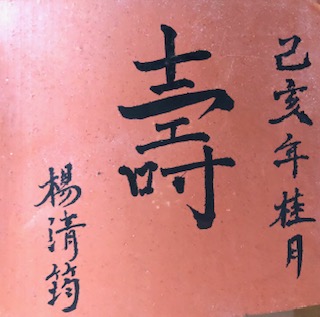 己亥年桂月
壽
楊清筠